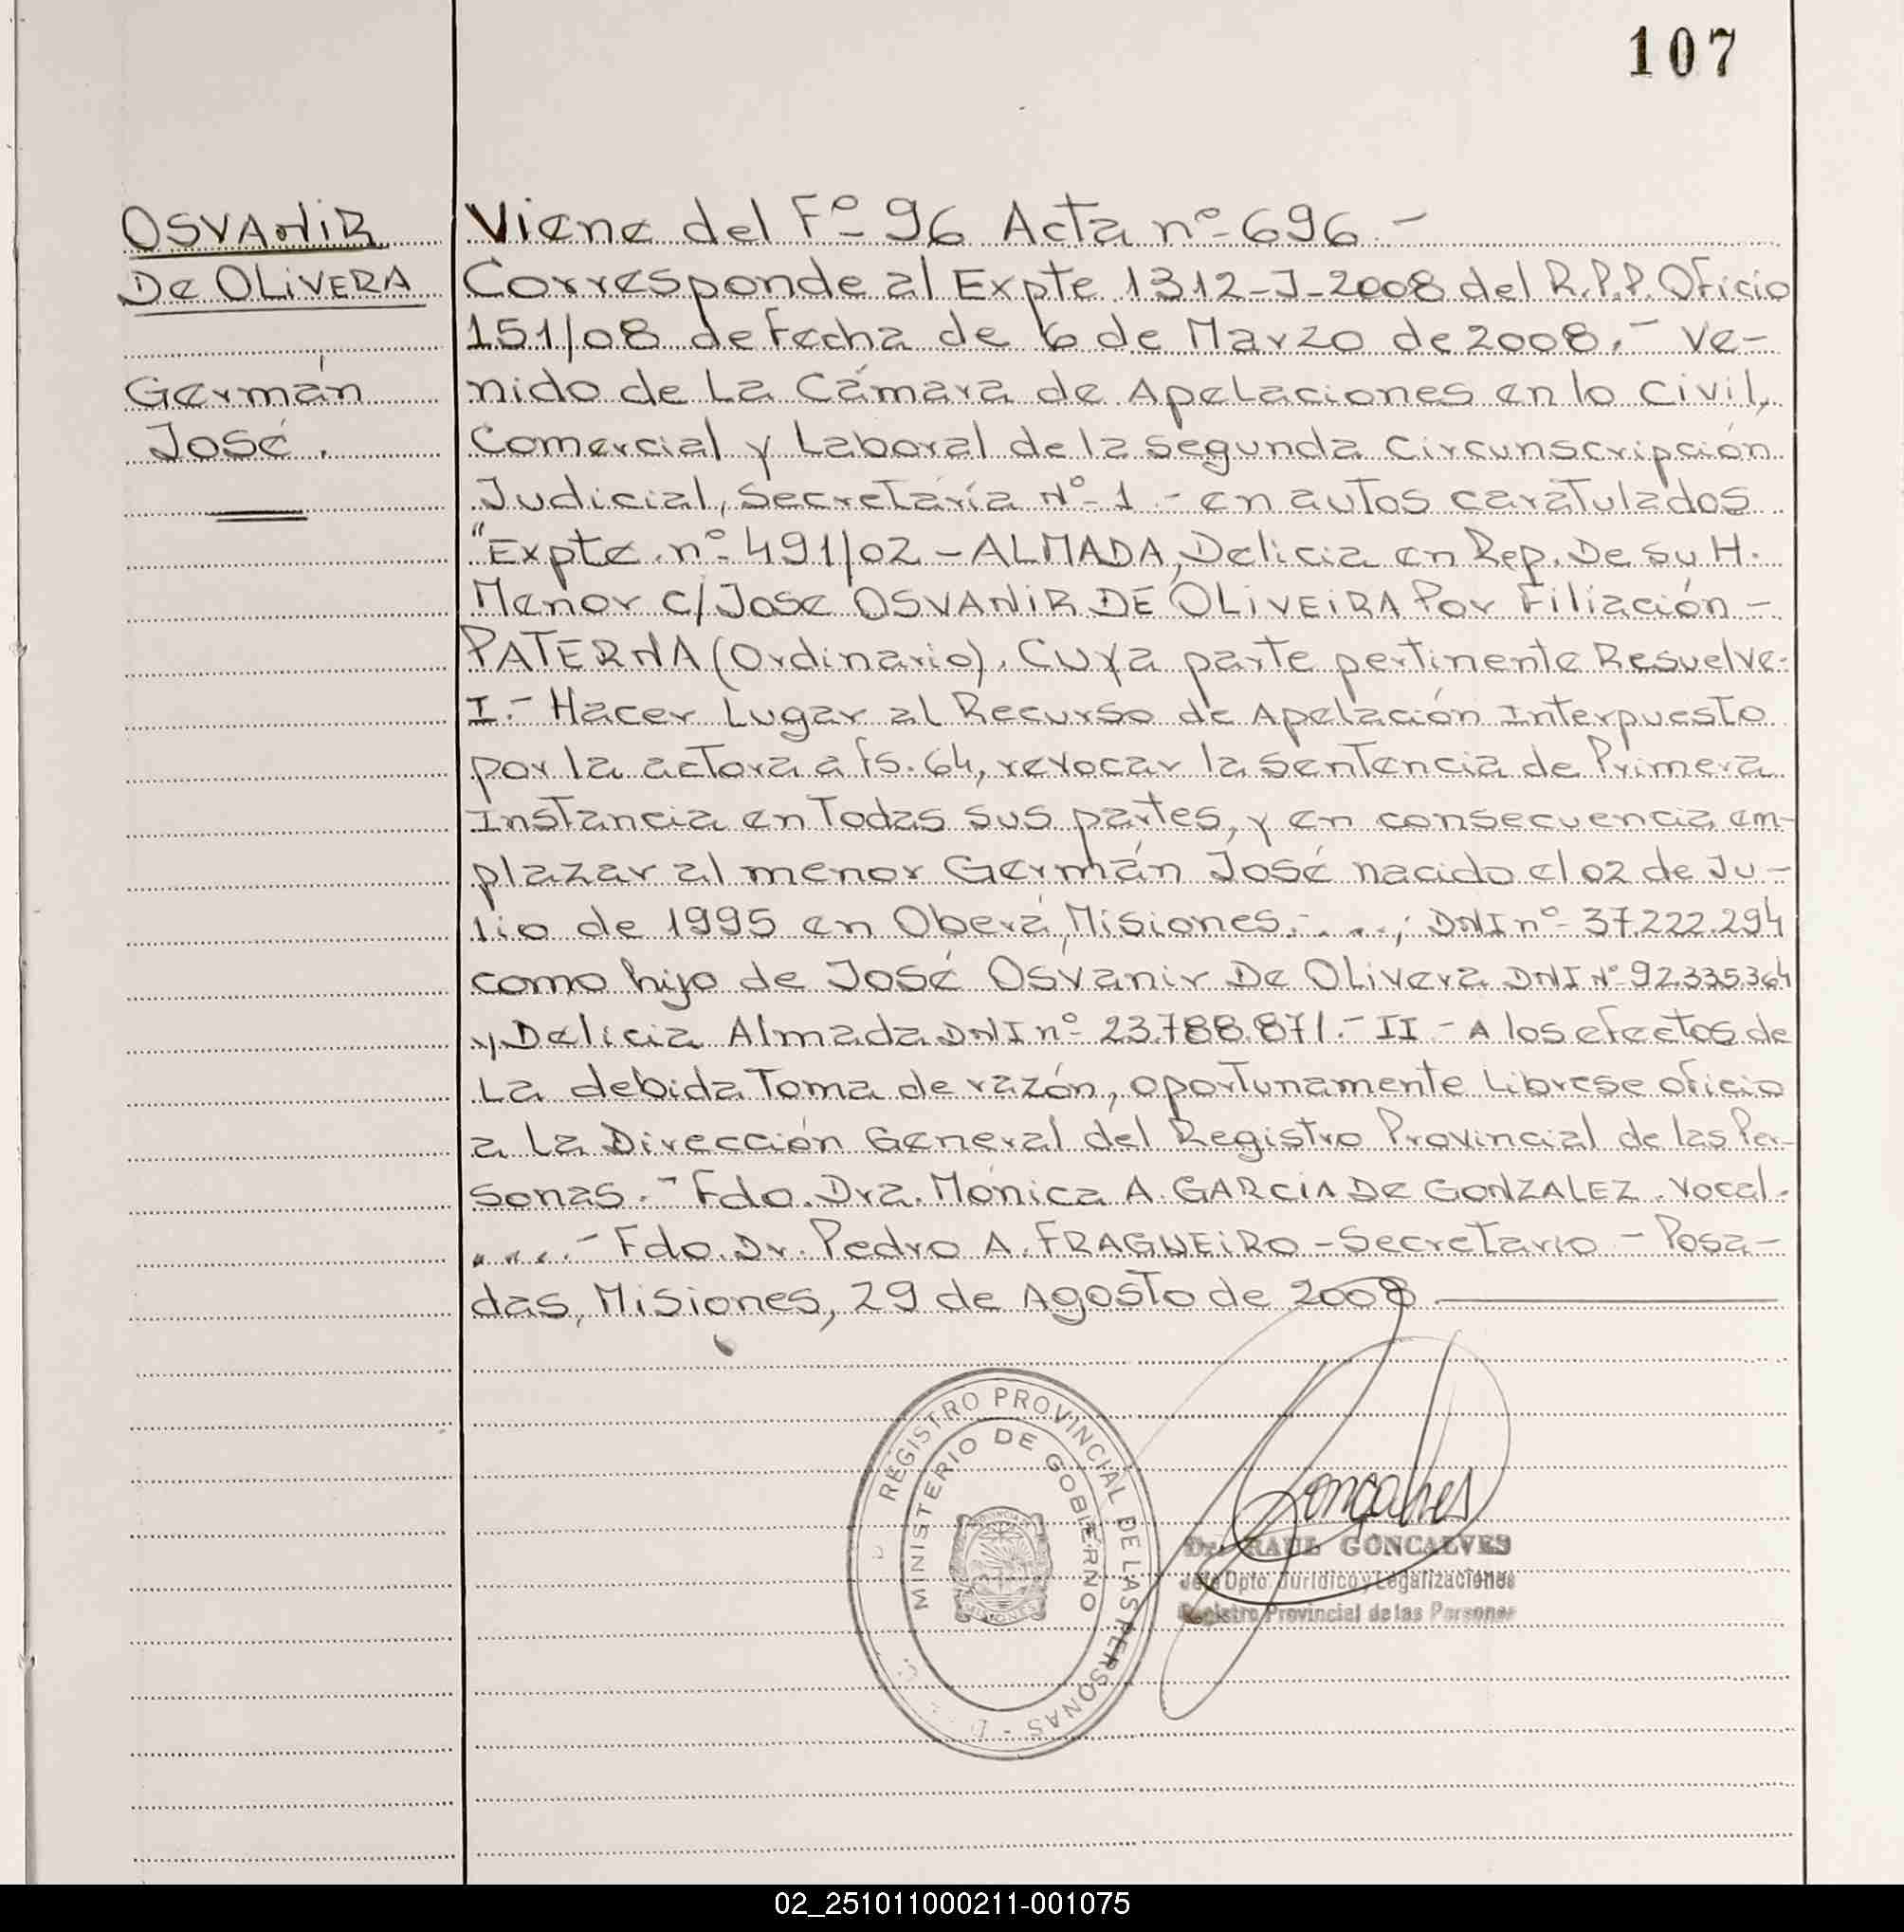 107
OSVANIR
De OLiVERA
Germán
José.
Viene del Fº 96 Acta nº 696.-
Corresponde al Expte 1312-J-2008 del R.P.P. Oficio
151/08 de fecha de 6 de Marzo de 2008.- Ve-
nido de La Cámara de Apelaciones en lo Civil,
Comercial y Laboral de la segunda Circunscripción
Judicial, Secretaría Nº 1 - en autos caratulados
"Expte. nº 491/02 - ALMADA, Delicia en Rep. De su H.
Menor c/ Jose OSVANiR DE OLiVEiRA Por Filiación -
PATERNA (Ordinario). Cuya parte pertinente Resuelve-
I.- Hacer Lugar al Recurso de Apelación Interpuesto
por la actora a fs. 64, revocar la sentencia de Primera
Instancia en Todas sus partes, y en consecuencia em-
plazar al menor Germán José nacido el 02 de Ju-
lio de 1995 en Oberá, Misiones. ...., DNI nº 37.222.294
como hijo de José Osvanir De Olivera DNI Nº 92.335.364
y Delicia Almada DNI nº 23.788.871.- II - A los efectos de
La debida Toma de razón, oportunamente Librese oficio
a La Dirección General del Registro Provincial de las Per-
sonas.- Fdo. Dra. Mónica A. GARCíA De GONZALEZ. Vocal.
.... - Fdo. Dr. Pedro A. FRAGUEiRO - Secretario - Posa-
das, Misiones, 29 de Agosto de 2008
REGISTRO PROVINCIAL DE LAS PERSONAS -
MINISTERIO DE GOBIERNO
MISIONES
Goncalves
Dr. RAUL GONCALVES
Jefe Dpto. Jurídico y Legalizaciones
Registro Provincial de las Personas
02_251011000211-001075